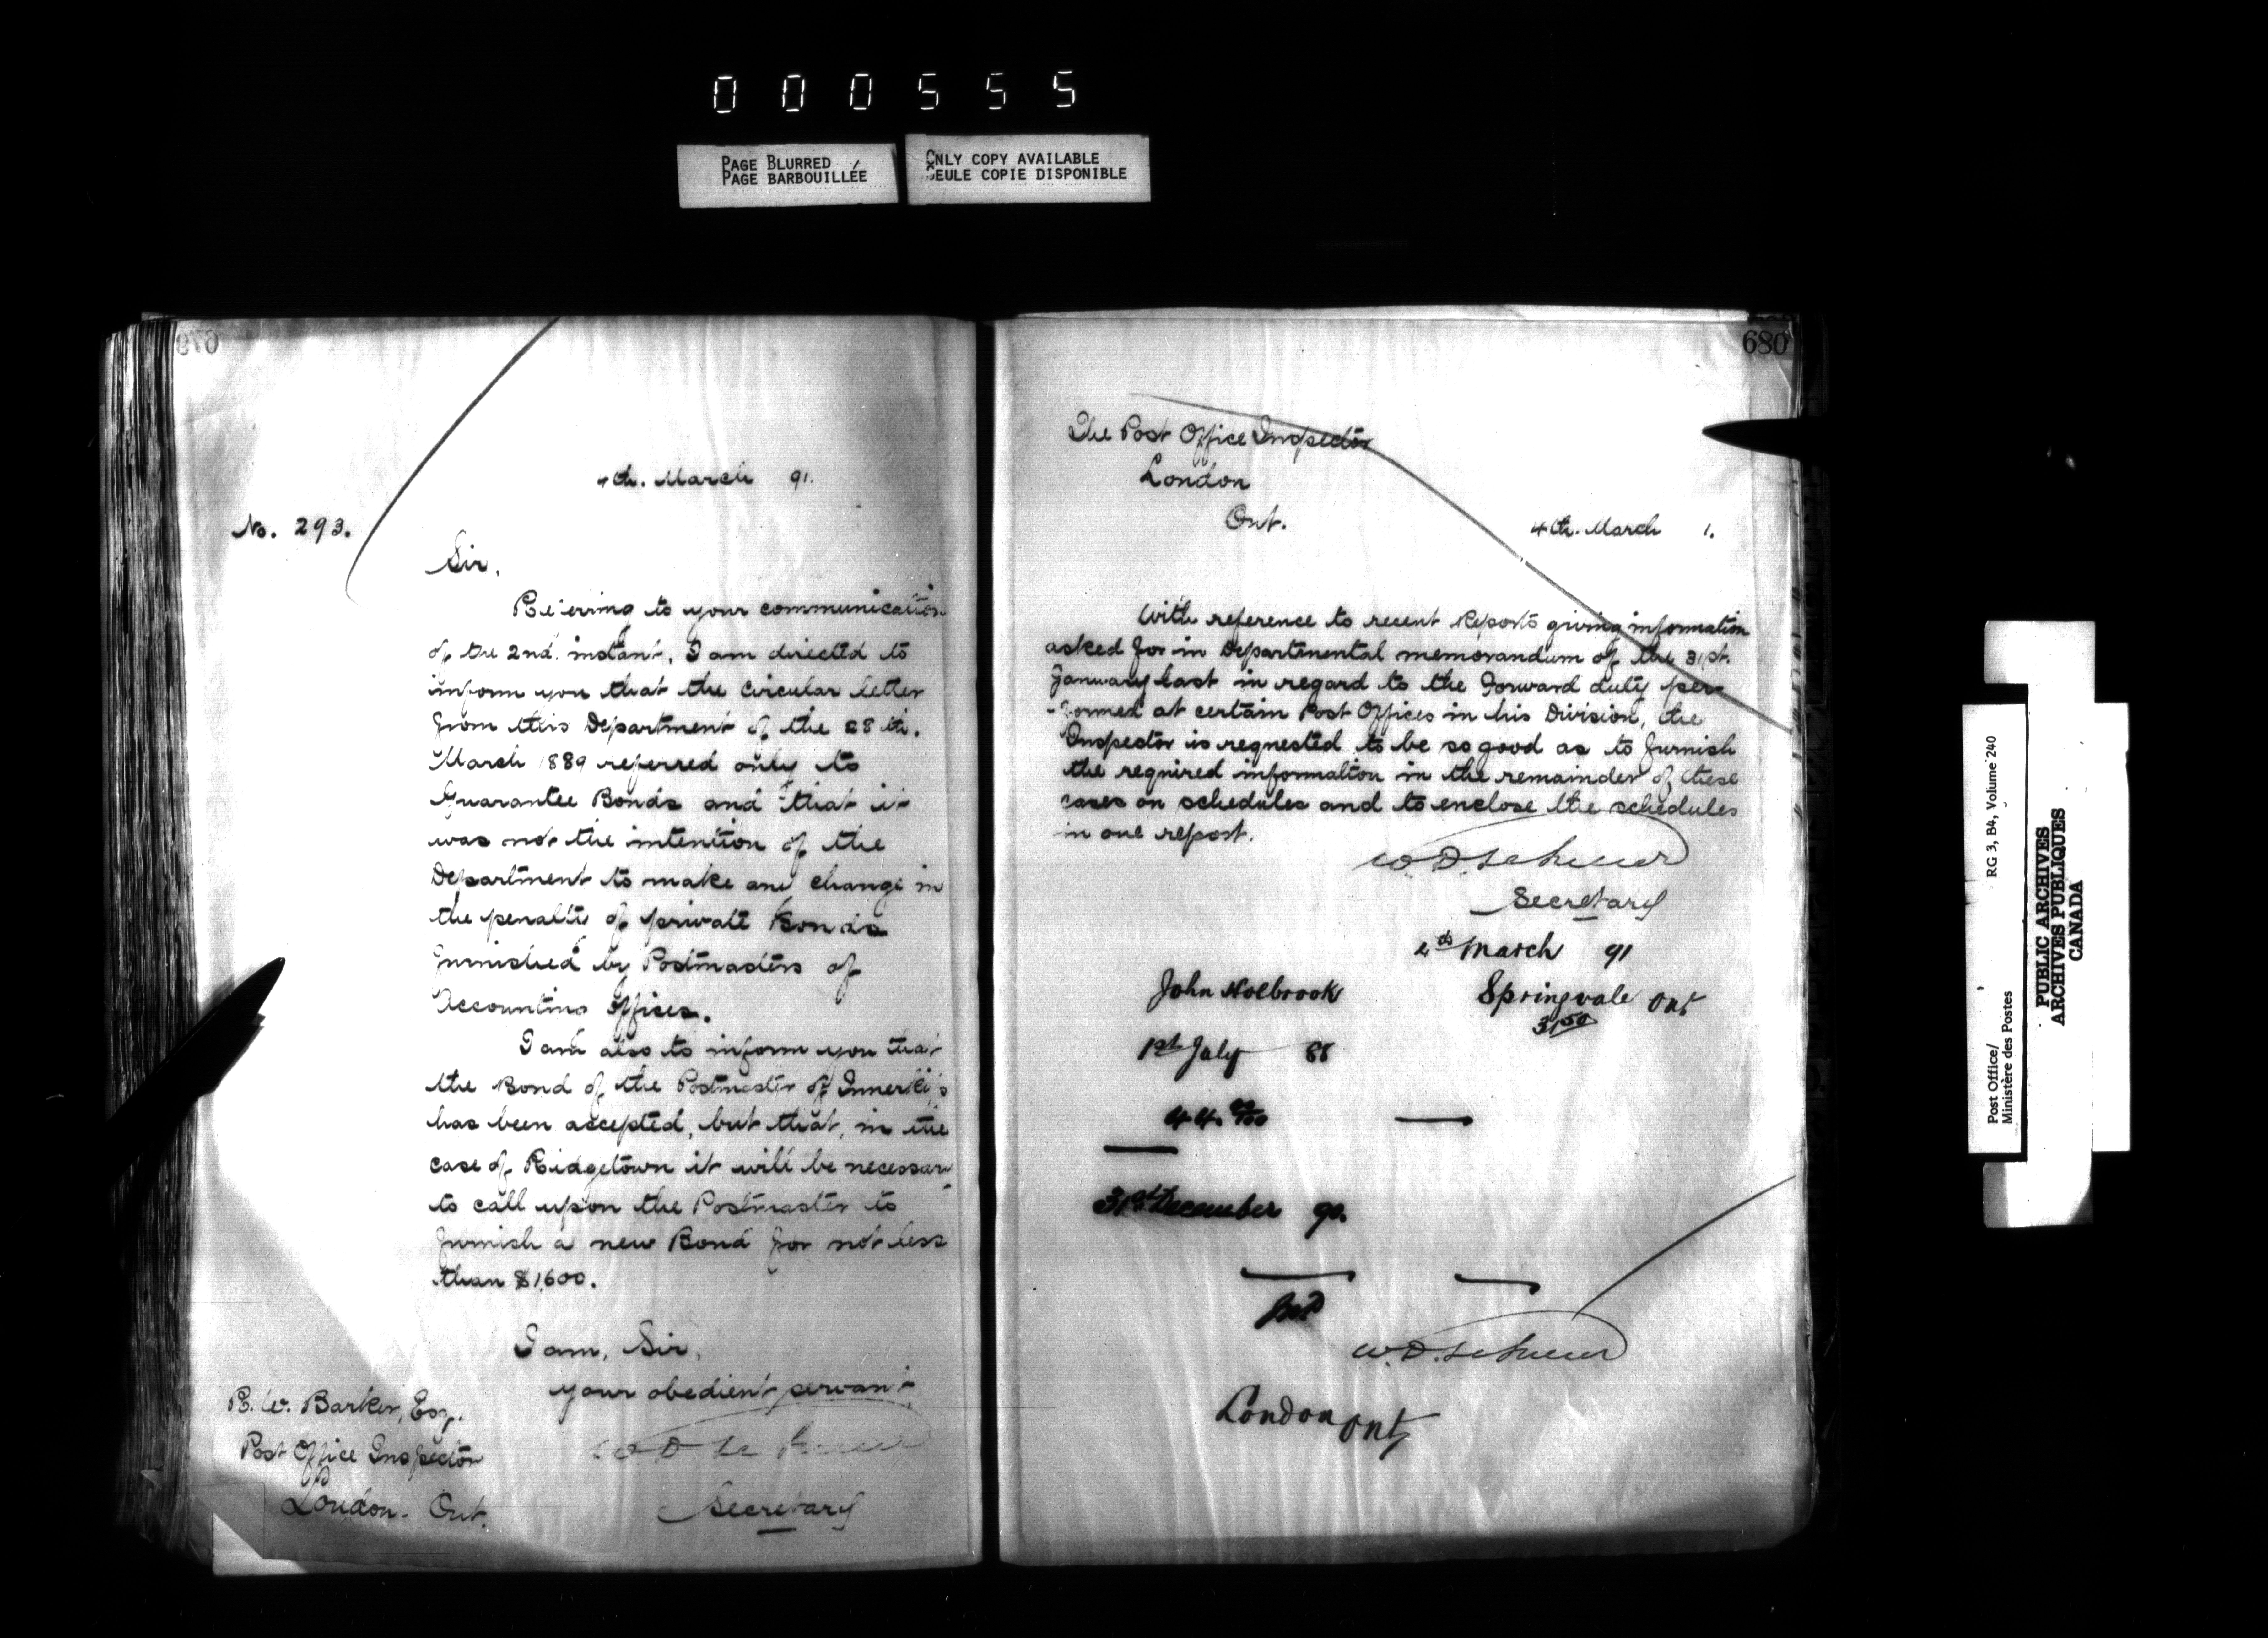 000555
PAGE BLURRED
PAGE BARBOUILLÉE
ONLY COPY AVAILABLE
SEULE COPIE DISPONIBLE
679
4th. March 91.
No. 293.
Sir,
Referring to your communication
of the 2nd. instant, I am directed to
inform you that the Circular letter
from this Department of the 28th.
March 1889 referred only to
Guarantee Bonds and that it
was not the intention of the
Department to make any change in
the penalty of private Bonds
furnished by Postmasters of
Accounting offices.
I am also to inform you that
the Bond of the Postmaster of Innerkip
has been accepted, but that, in the
case of Ridgetown it will be necessary
to call upon the Postmaster to
furnish a new Bond for not less
than $1,600.
I am, Sir,
your obedient servant
W D LeSueur
Secretary
R. W. Barker, Esq.
Post Office Inspector
London. Ont.
680
The Post Office Inspector
London
Ont.
4th. March 1.
With reference to recent Reports giving information
asked for in Departmental memorandum of the 31st.
January last in regard to the Forward duty per-
-formed at certain Post Offices in his Division, the
Inspector is requested to be so good as to furnish
the required information in the remainder of these
cases on schedules and to enclose the schedules
in one report.
W. D. LeSueur
Secretary
4th March 91
John Holbrook
Springvale Ont
31 50
1st July 88
44.
31st December 90.
W. D. LeSueur
London Ont
Post Office/
Ministère des Postes
RG 3, B4, Volume 240
PUBLIC ARCHIVES
ARCHIVES PUBLIQUES
CANADA